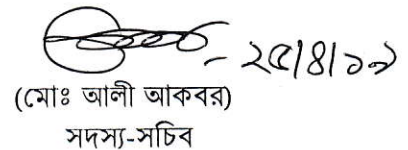 ২৫/৪/১৯
(মোঃ আলী আকবর)
সদস্য-সচিব